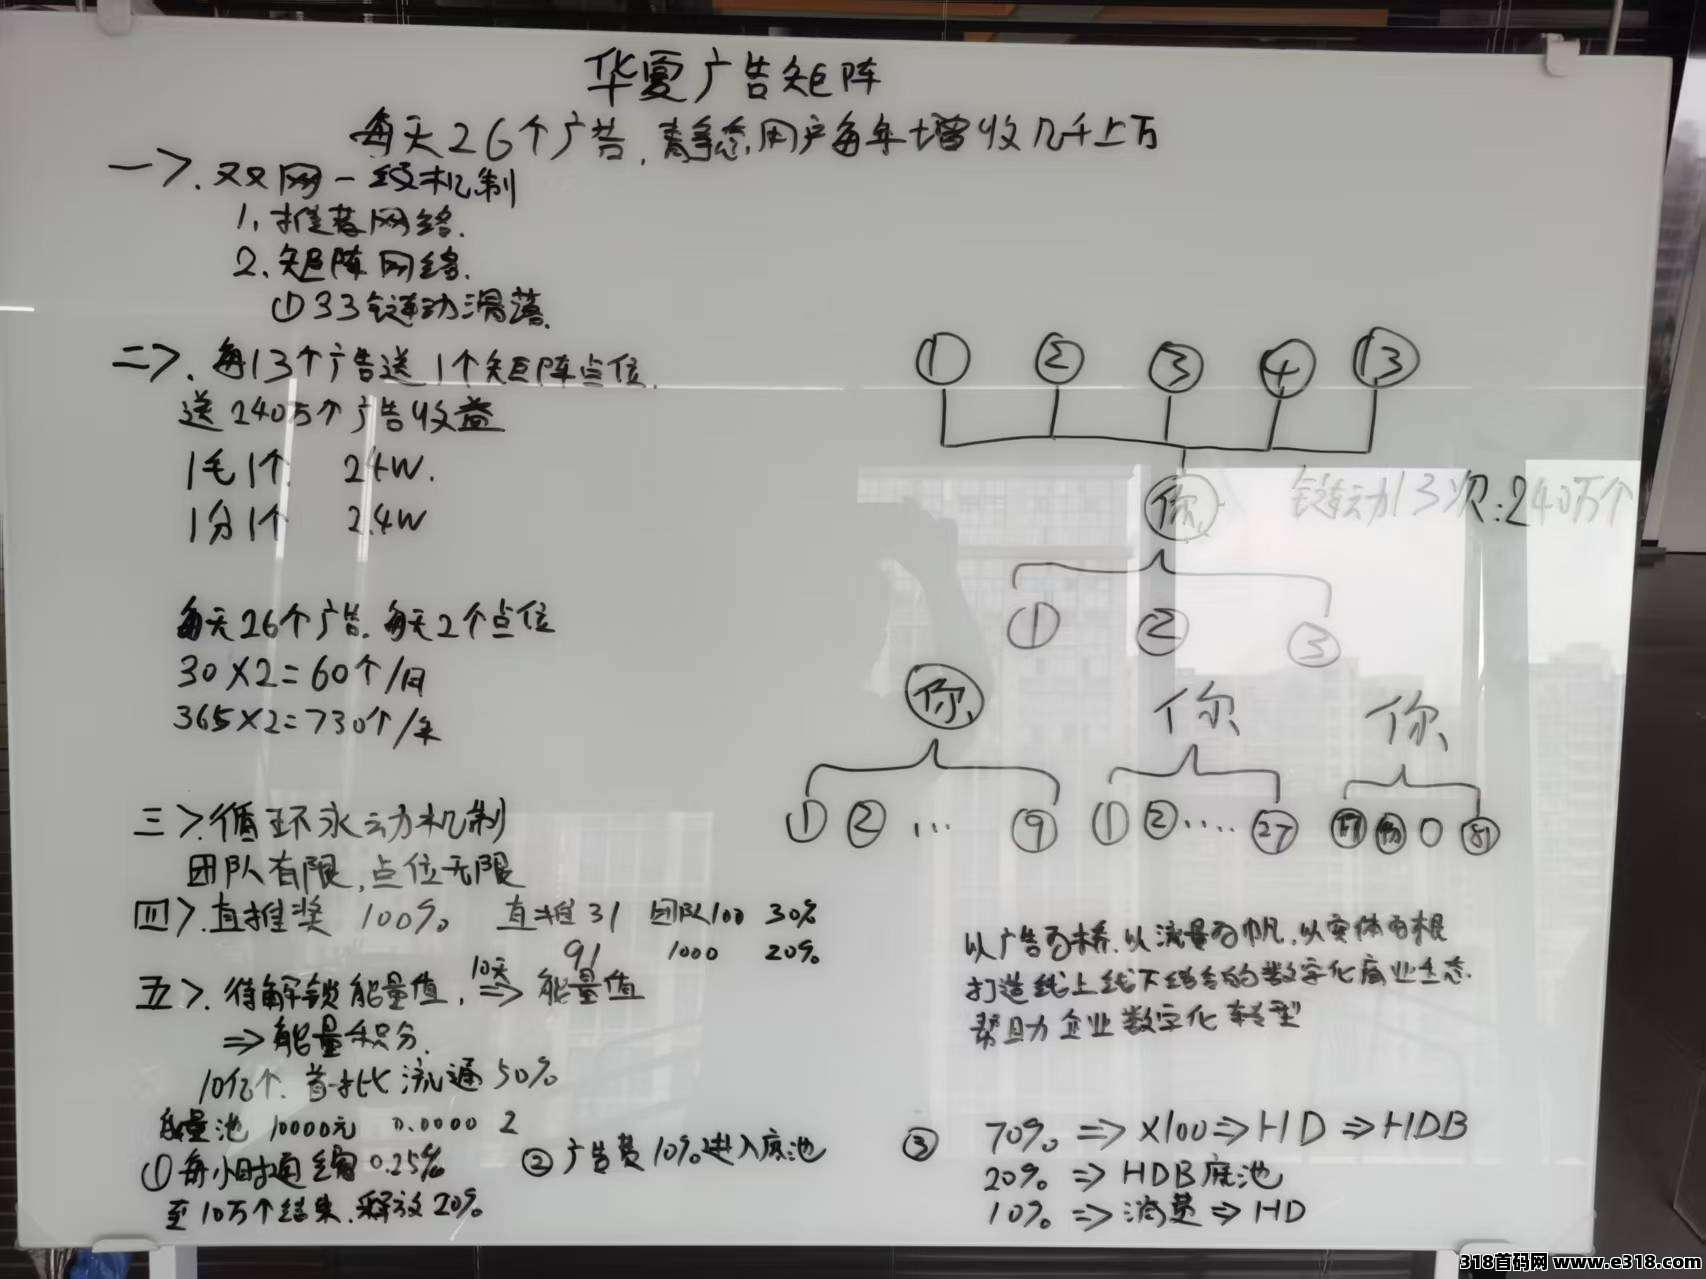 华夏广告矩阵
每天26个广告,静态用户每年增收几千上万
一>.双网一级机制
1.推荐网络.
2.矩阵网络.
①33链动滑落.
二>.每13个广告送1个矩阵点位.
送240万个广告收益
1毛1个 24W.
1分1个 2.4W
每天26个广告.每天2个点位
30×2=60个/月
365×2=730个/年
① ② ③ ④ ⑬
你
链动13次:240万个
① ② ③
你 你 你
① ② ... ⑨ ① ② .... ㉗
三>.循环永动机制
团队有限,点位无限
四>.直推奖 100% 直推31 团队100 30%
91 1000 20%
五>.待解锁能量值, 10天 => 能量值
=> 能量积分.
10亿个.首批流通50%
能量池 10000元 0.0000 2
①每小时通缩0.25%
至10万个结束.释放20%
②广告费10%进入底池
以广告为桥.以流量为帆.以实体为根
打造线上线下结合的数字化商业生态.
帮助企业数字化转型
③ 70% => ×100 => HD => HDB
20% => HDB底池
10% => 消费 => HD
318首码网 www.e318.com